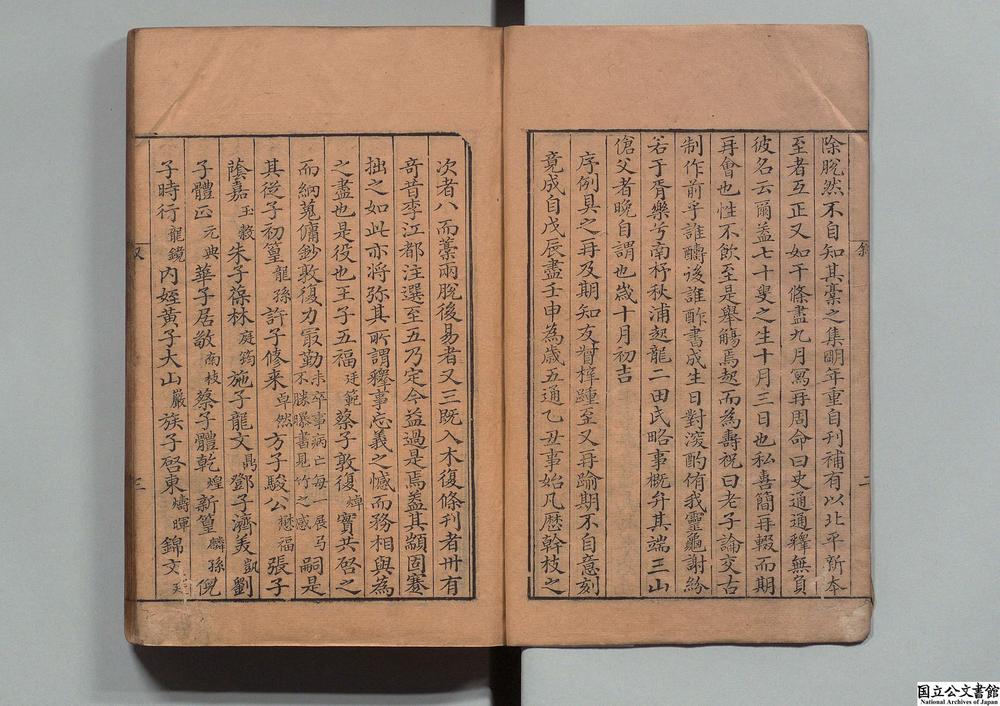 除脫然不自知其槀之集明年重自刊補有以北平新本
至者互正又如干條盡九月寫再周命曰史通通釋無負
彼名云爾葢七十叟之生十月三日也私喜簡再輟而期
再會也性不飲至是舉觴焉起而為壽祝曰老子論交古
制作前乎誰醻後誰酢書成生日對深酌侑我靈龜謝紛
若于胥樂兮南杼秋浦起龍二田氏略事概弁其端三山
傖父者晚自謂也歲十月初吉
序例具之再及期知友督梓踵至又再踰期不自意刻
竟成自戊辰盡壬申為歲五通乙丑事始凡歷幹枝之
敘
二
次者八而藁兩脫後易者又三既入木復條刊者卅有
奇昔李江都注選至五乃定今益過是焉葢其顓固蹇
拙之如此亦將弥其所謂釋事忘義之憾而務相與為
之盡也是役也王子五福廷範蔡子敦復焯實共啓之
而綱蒐傭鈔敦復力㝡勤未卒事病亡每一展马不勝曝書見竹之感嗣是
其從子初篁龍孫許子修来卓然方子駿公懋福張子
蔭嘉玉穀朱子葆林庭筠施子龍文鼎鄧子濟美凱劉
子體正元典華子居敬南枝蔡子體乾煌新篁麟孫倪
子時行龍鏡内姪黃子大山巖族子啓東燽暉錦文
三
国立公文書館
National Archives of Japan